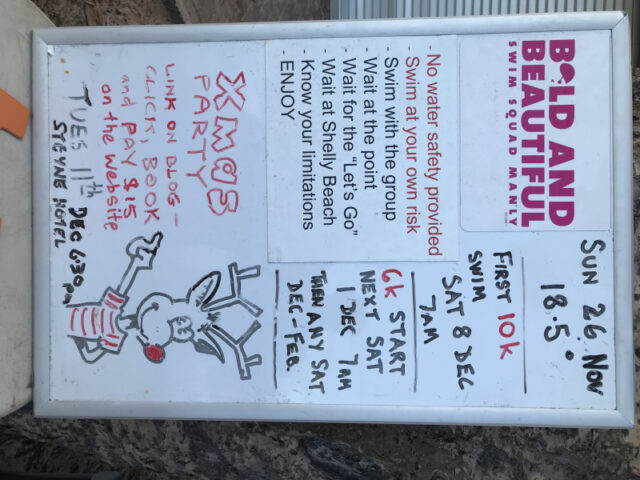 BOLD AND
BEAUTIFUL
SWIM SQUAD MANLY
SUN 26 NOV
18.5°
- No water safety provided
- Swim at your own risk
- Swim with the group
- Wait at the point
- Wait for the "Let's Go"
- Wait at Shelly Beach
- Know your limitations
- ENJOY
FIRST 10K
SWIM
SAT 8 DEC
7AM
6K START
NEXT SAT
1 DEC 7AM
THEN ANY SAT
DEC-FEB.
XMAS
PARTY
LINK ON BLOG -
CLICK, BOOK
and PAY $15
on the website
TUES 11th DEC 6.30 pm
HOTEL